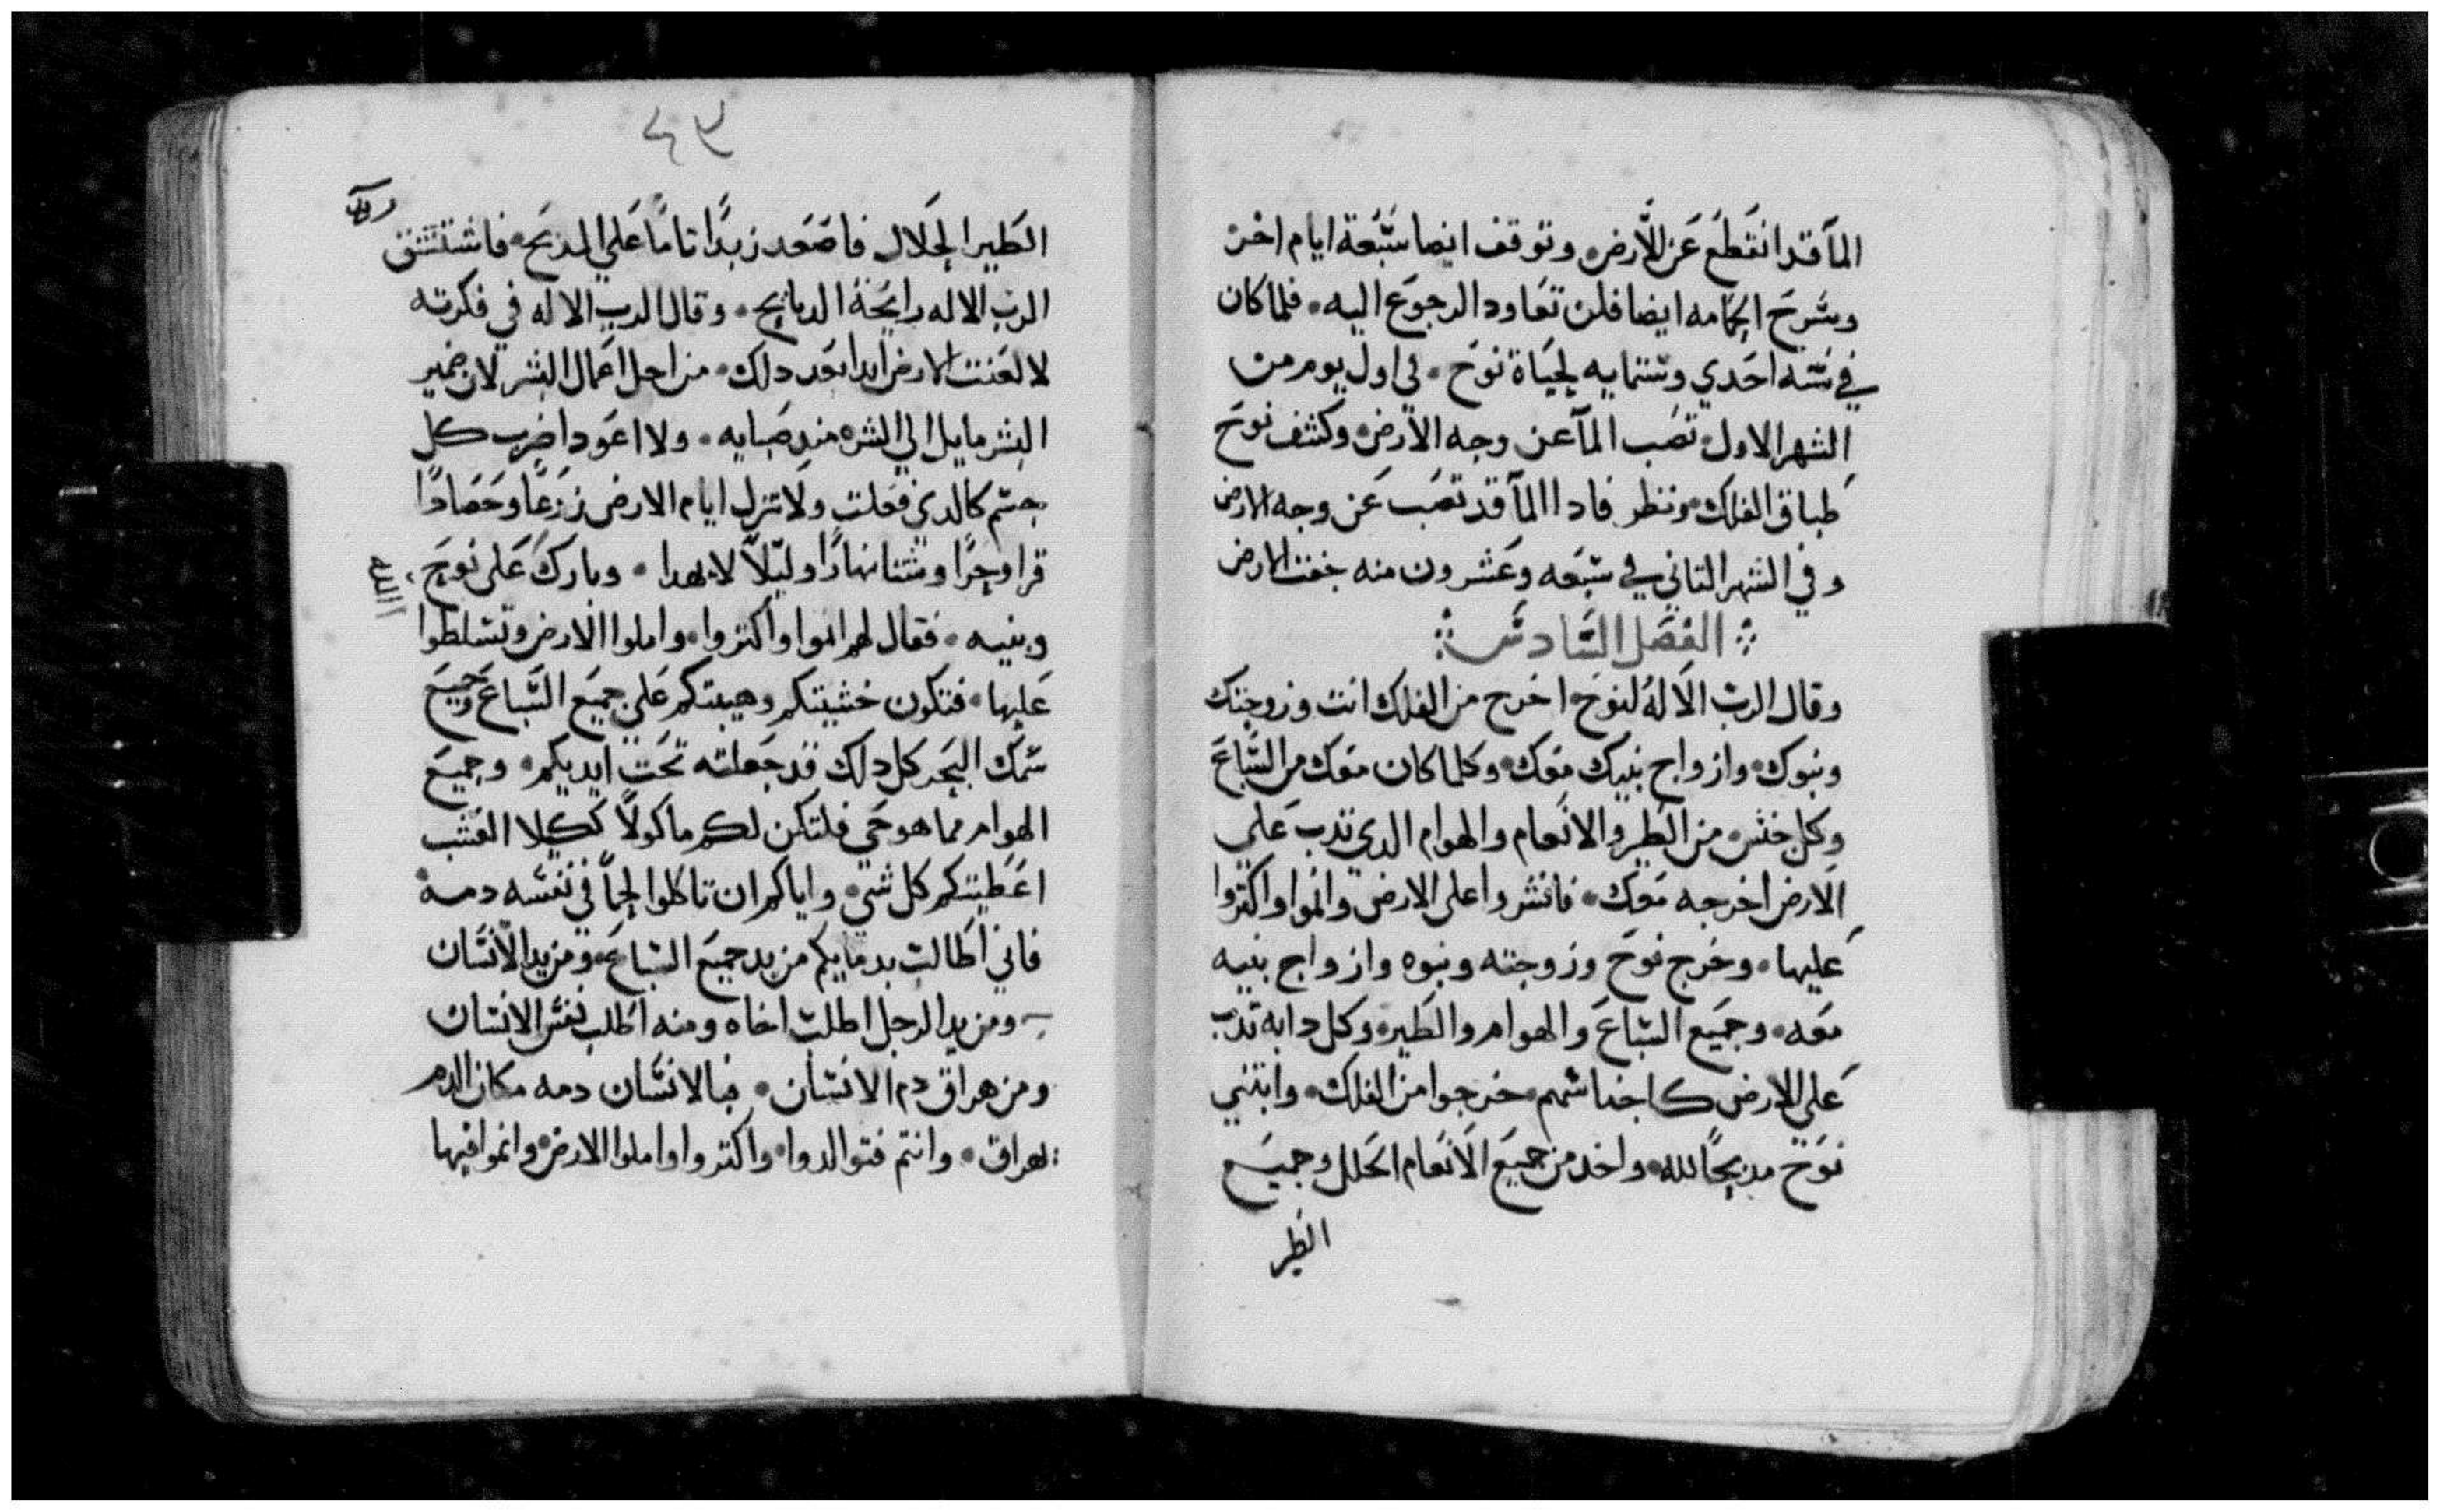 المآ قد انقطع عَن الأرض وتوقف ايضا سَبَعة ايام اخر
وسَرحَ الحمامه ايضا فلن تعَاود الرجوع اليه. فلما كان
في سَنه احَدي وستمايه لحيَاة نوحَ. في اول يوم من
الشهر الاول نضب المآ عن وجه الأرض وكشف نوحَ
طباق الفلك ونظر فادا المآ قد نضب عَن وجه الارض
وفي الشهر التاني في سَبعَه وعَشرون منه جفت الارض
الفصَل السَادسَ
وقال الربَ الالهُ لنوحَ اخرج من الفلك انت وزوجتك
وبنوك وازواج بنيك معَك وكلما كان معَك من السَباعَ
وكل جنس من الطير والانعام والهوام الدي تدب علي
الارض اخرجه معَك. فانشروا على الارض وانموا واكتروا
عَليها. وخرج نوحَ وزوجته وبنوه وازواج بنيه
معَه. وجميَع السَباعَ والهوام والطير وكل دابه تدب
عَلى الارض كاجناسَهم خرجوا من الفلك. وابتني
نوحَ مدبحًا لله واخد من جميَع الأنعَام الحلل وجميَع
الطير
٤٩
الطَير الحَلال فاصَعَد زبدًا تامًا عَلي المدبَح. فاستنشق
الرب الاله رايحَة الدبايح. وقال الرب الاله في فكرته
لا لعَنت الارض ابدا بعَد دلك. من اجل اعَمال البشر لان ضمير
البشر مايل الي الشر مند صَبايه. ولا اعَود اضرب كل
جسَم كالدي فعَلت ولا تزل ايام الارض زرَعًا وحَصَادًا
قرا وحرًا وشتا نهارًا وليلاً لا يهدا. وباركَ عَلى نوحَ
الله
وبنيه. فقال لهم انموا واكتروا. واملوا الارض وتسَلطوا
عَليها. فتكون خشيتكم وهيبتكم عَلي جميَع السَباعَ وجميَع
سَمك البحَر كل دلك قد جَعلته تحَت ايديكم. وجميَع
الهوام مما هو حَي فلتكن لكم ماكولاً ككلا العَشب
اعَطيتكم كل شي. واياكم ان تاكلوا لحمًا في نفسَه دمه
فاني اطالب بدمايكم من يد جميَع السَباعَ. ومن يد الأنسَان
ومن يد الرجل اطلب اخاه ومنه اطلب نفسَ الانسَان
ومن هراق دم الانسَان. فبالانسَان دمه مكان الدم
يهراق. وانتم فتوالدوا واكتروا واملوا الارض وانموا فيها